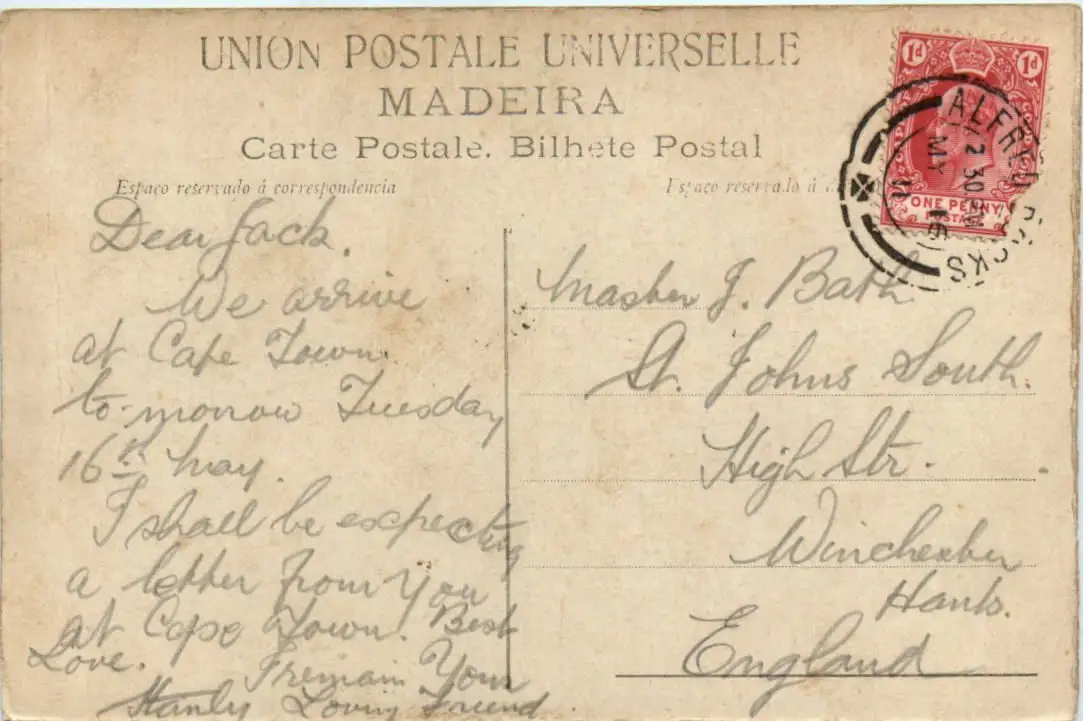 UNION POSTALE UNIVERSELLE
MADEIRA
Carte Postale. Bilhete Postal
Espaço reservado á correspondencia
Espaço reservado á
1d 1d
ONE PENNY
POSTAGE
ALFRED DOCKS
2 30 PM
MY 16
11
Dear Jack.
We arrive
at Cape Town
to-morrow Tuesday
16th May.
I shall be expecting
a letter from You
at Cape Town. Best
Love.
I remain Your
Stanly Loving Friend
Master J. Bath
St. Johns South.
High Str.
Winchester
Hants.
England